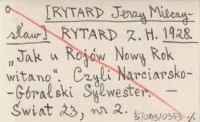 [RYTARD Jerzy Mieczy-
sław] RYTARD Z. H. 1928.
„Jak u Rojów Nowy Rok
witano". Czyli Narciarsko-
-Góralski Sylwester. —
Świat 23, nr 2.